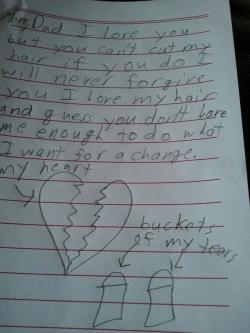 Mom, Dad I love you
but you can't cut my
hair if you do I
will never forgive
you I love my hair
and guess you don't love
me enough to do what
I want for a change,
my heart
buckets
of my tears